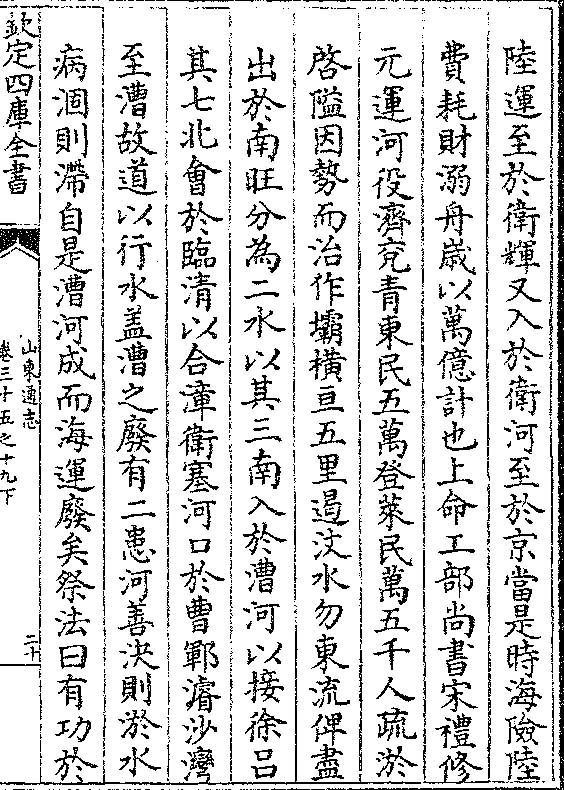 陸運至於衛輝又入於衛河至於京當是時海險陸
費耗財溺舟嵗以萬億計也上命工部尚書宋禮修
元運河役濟兖青東民五萬登萊民萬五千人疏淤
啓隘因勢而治作壩橫亘五里遏汶水勿東流俾盡
出於南旺分為二水以其三南入於漕河以接徐吕
其七北會於臨清以合漳衛塞河口於曹鄆濬沙灣
至漕故道以行水盖漕之廢有二患河善決則淤水
病涸則滯自是漕河成而海運廢矣祭法曰有功於
欽定四庫全書
山東通志
卷三十五之十九下
二十